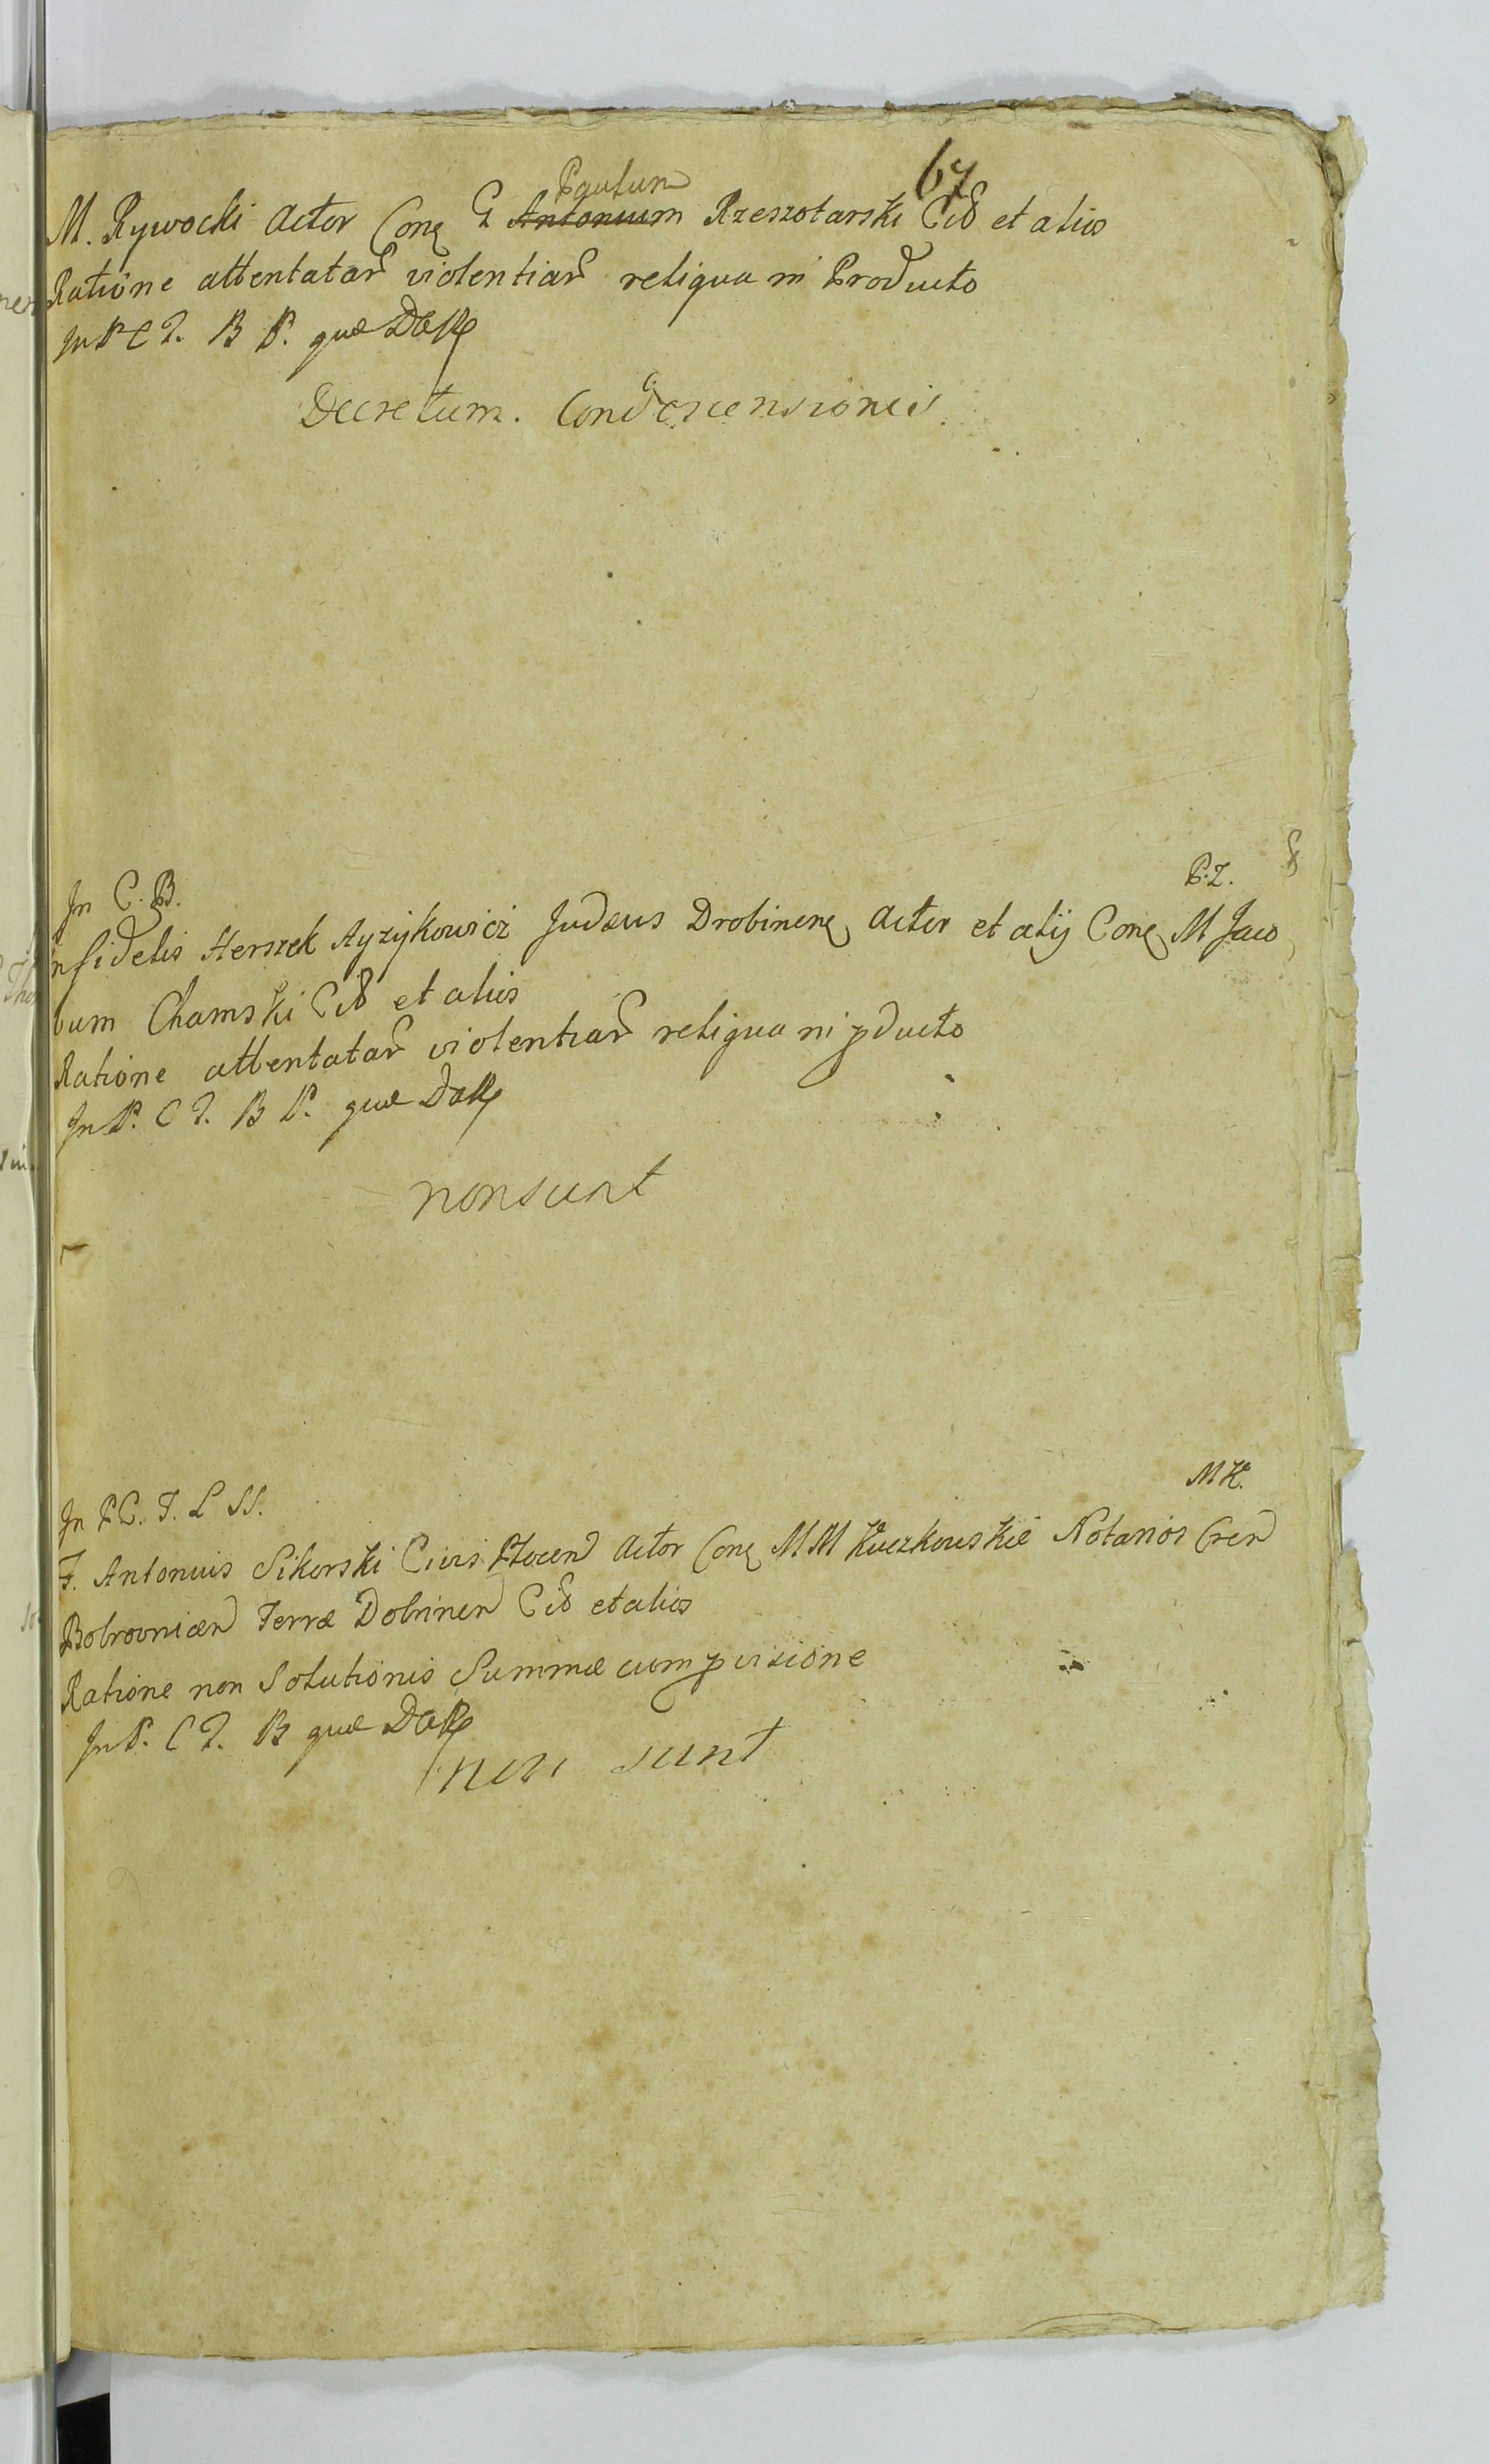 67
Paulum
M. Rywocki Actor Conq G Antonium Rzeszotarski Cit et alios
Ratione attentatar violentiar reliqua in Producto
In P C T. B P. quæ
Decretum. Condescensionis
P. Z.
In C. B.
Infidelis Herszek Ayzykowicz Judæus Drobinens Actor et alij Conq M Jaco
bum Chamski Cit et alios
Ratione attentatar violentiar reliqua in pducto
In P. C T. B P. quæ
non sunt
M K.
In P C. T. L SS.
F. Antonius Sikorski Civis Plocen Actor Conq M M Kuczkowskie Notarios
Bobrovnicen Terræ Dobrinen Cit et alios
Ratione non Solutionis Summæ cum pvisione
In P. C T. B quæ
non sunt